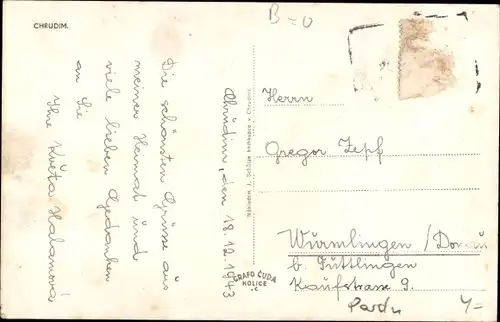 CHRUDIM.
B=0
Chrudim, den 18.12.1943
Die schönsten Grüsse aus
meiner Heimat und
viele lieben Gedanken
an Sie
Ihre Květa Halamová
Nákladem J. Schütze knihkupce v Chrudimi.
GRAFO ČUDA
HOLICE
Herrn
Gregor Zepf
Wurmlingen/Donau
b. Tuttlingen
Kaufstrasse 9.
Pardu
4=